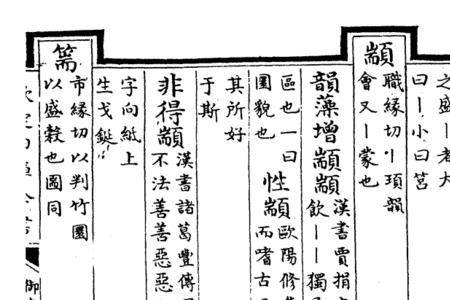 之盛丨老大
曰丨小曰筥
顓
職緣切丨頊韻
會又丨蒙也
韻藻增顓顓
漢書賈捐
飲丨丨獨
區也一曰
圜貌也
性顓
歐陽修
而嗜古
其所好
于斯
非得顓
漢書諸葛豐傳
不法善善惡惡
字向紙上
生戈鋋
篅
市緣切以判竹圜
以盛穀也圖同
御